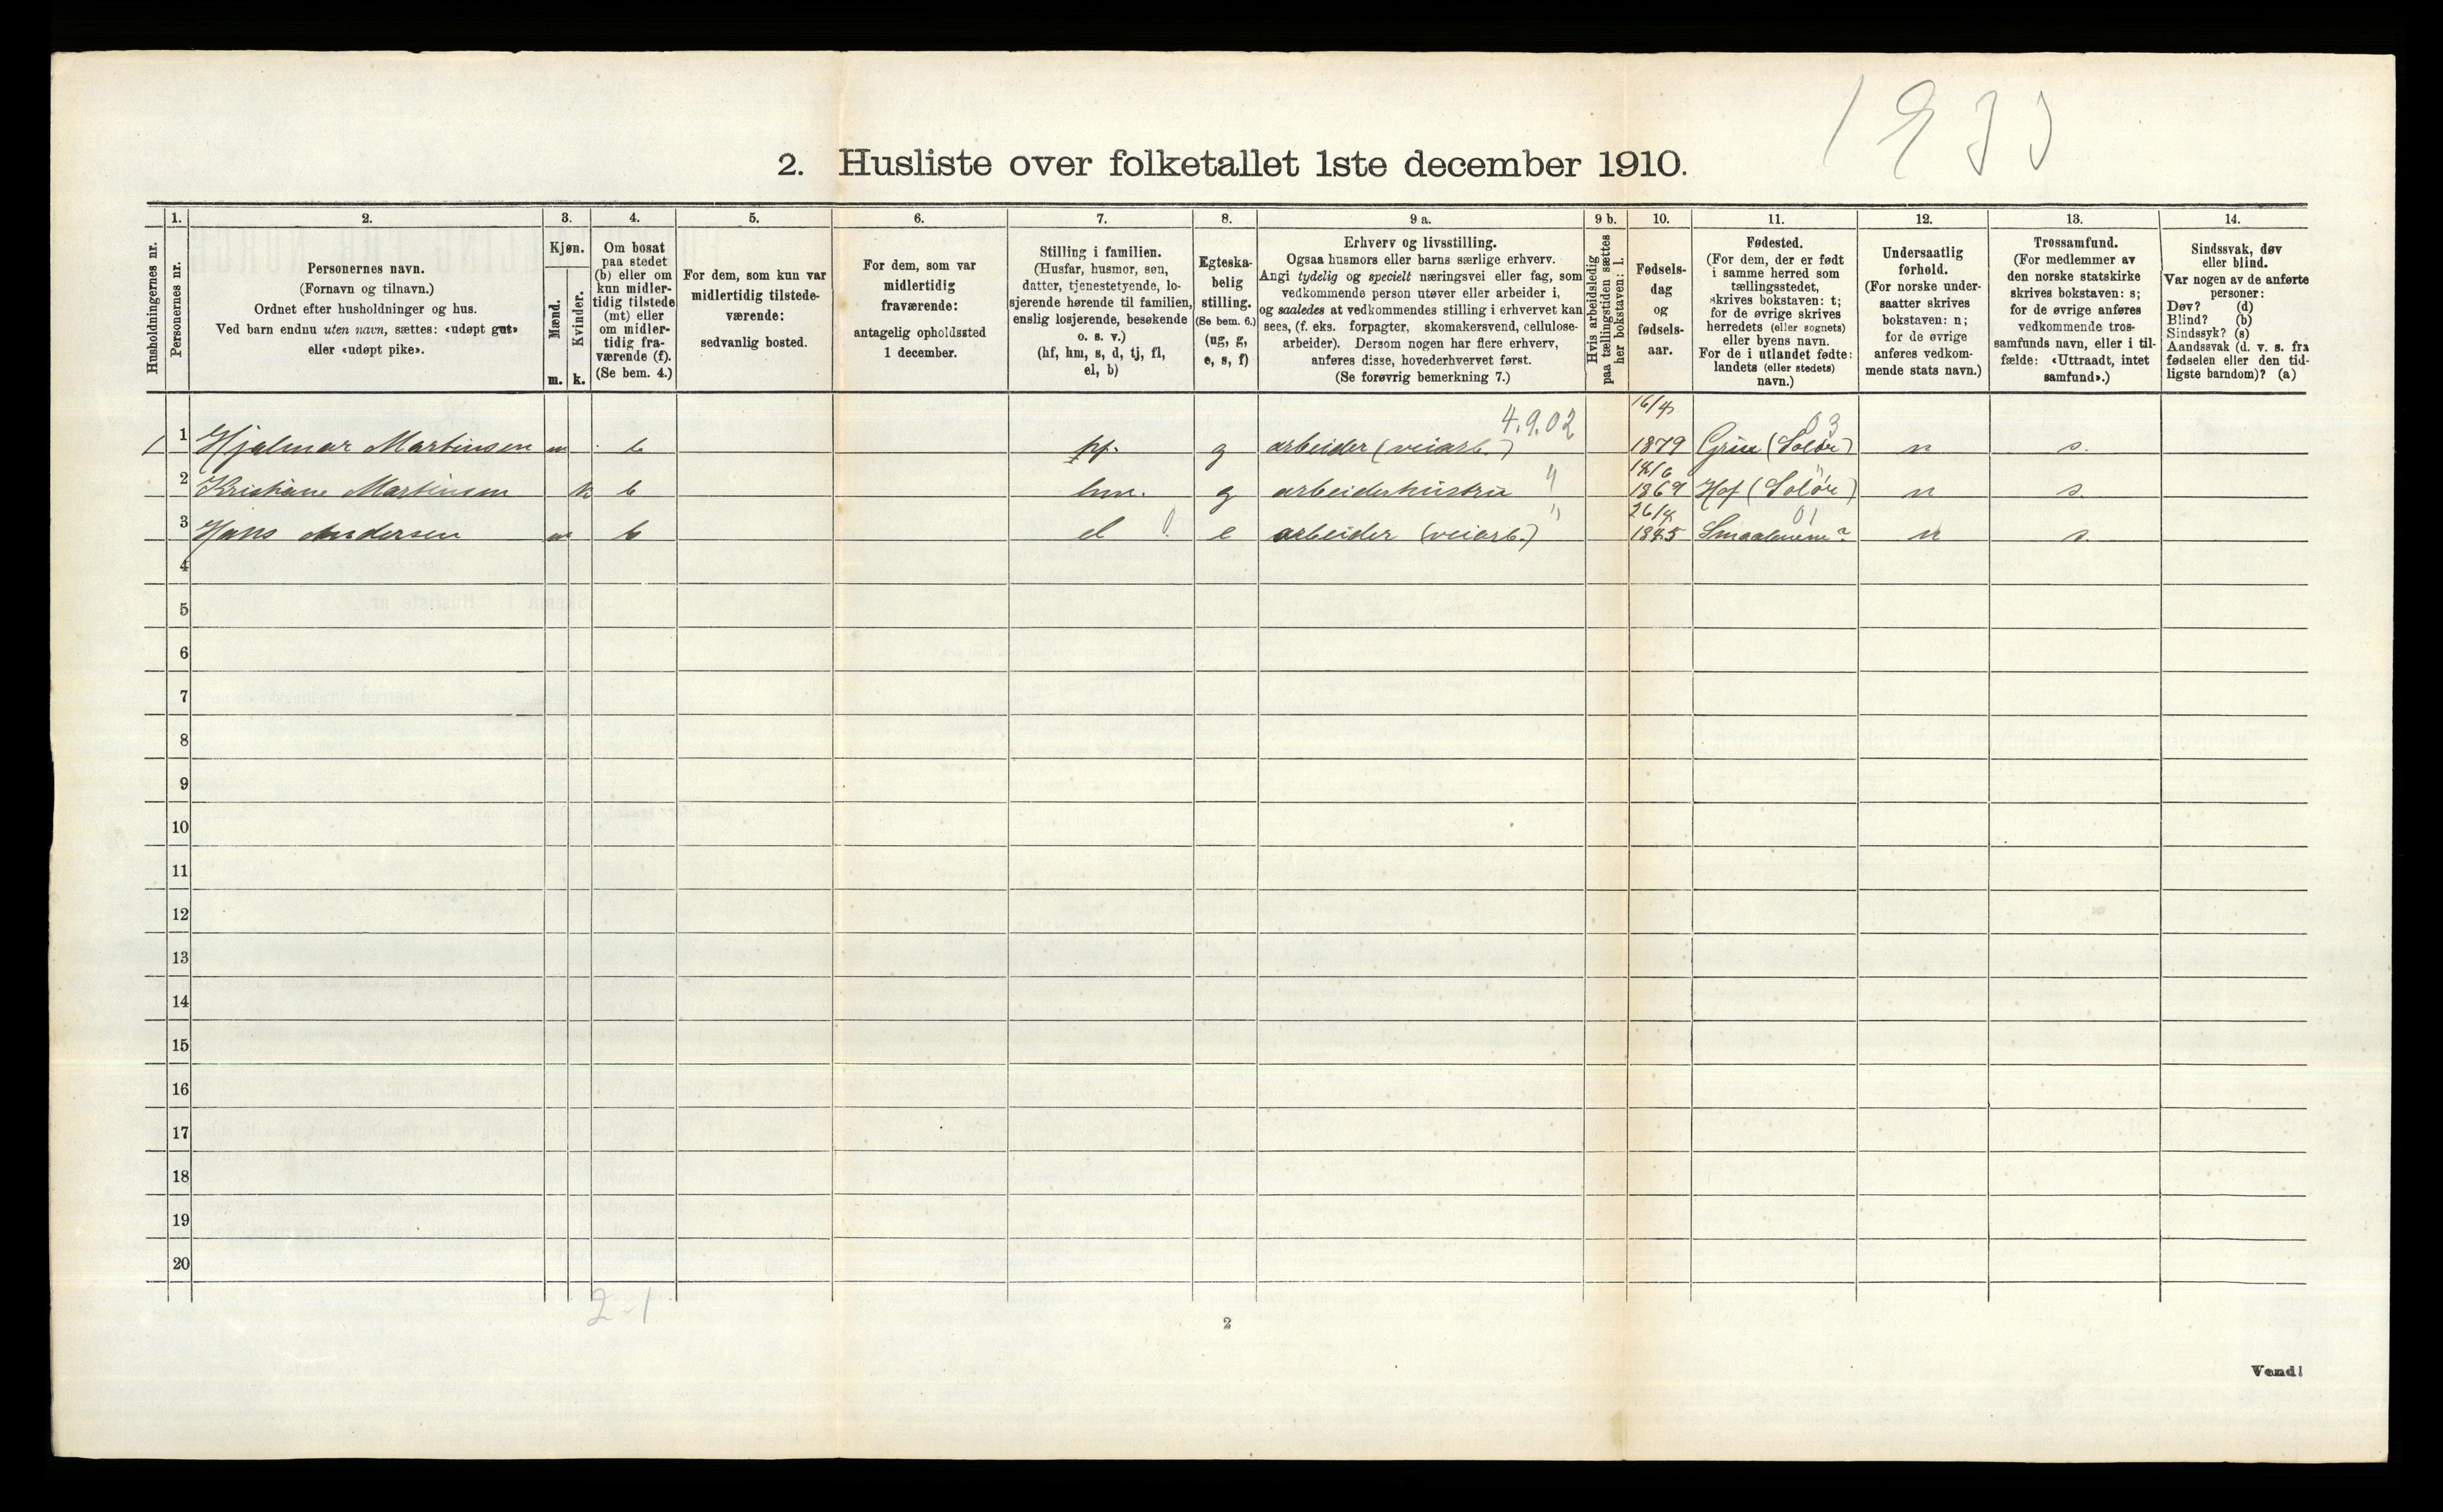 1933
2. Husliste over folketallet 1ste december 1910.
1. 2. 3. 4. 5. 6. 7. 8. 9 a. 9 b. 10. 11. 12. 13. 14.
Husholdningernes nr.
Personernes nr.
Personernes navn.
(Fornavn og tilnavn.)
Ordnet efter husholdninger og hus.
Ved barn endnu uten navn, sættes: «udøpt gut»
eller «udøpt pike».
Kjøn.
Mænd.
Kvinder.
m. k.
Om bosat
paa stedet
(b) eller om
kun midler-
tidig tilstede
(mt) eller
om midler-
tidig fra-
værende (f).
(Se bem. 4.)
For dem, som kun var
midlertidig tilstede-
værende:
sedvanlig bosted.
For dem, som var
midlertidig
fraværende:
antagelig opholdssted
1 december.
Stilling i familien.
(Husfar, husmor, søn,
datter, tjenestetyende, lo-
sjerende hørende til familien,
enslig losjerende, besøkende
o. s. v.)
(hf, hm, s, d, tj, fl,
el, b)
Egteska-
belig
stilling.
(Se bem. 6.)
(ug, g,
e, s, f)
Erhverv og livsstilling.
Ogsaa husmors eller barns særlige erhverv.
Angi tydelig og specielt næringsvei eller fag, som
vedkommende person utøver eller arbeider i,
og saaledes at vedkommendes stilling i erhvervet kan
sees, (f. eks. forpagter, skomakersvend, cellulose-
arbeider). Dersom nogen har flere erhverv,
anføres disse, hovederhvervet først.
(Se forøvrig bemerkning 7.)
Hvis arbeidsledig
paa tællingstiden sættes
her bokstaven: l.
Fødsels-
dag
og
fødsels-
aar.
Fødested.
(For dem, der er født
i samme herred som
tællingsstedet,
skrives bokstaven: t;
for de øvrige skrives
herredets (eller sognets)
eller byens navn.
For de i utlandet fødte:
landets (eller stedets)
navn.)
Undersaatlig
forhold.
(For norske under-
saatter skrives
bokstaven: n;
for de øvrige
anføres vedkom-
mende stats navn.)
Trossamfund.
(For medlemmer av
den norske statskirke
skrives bokstaven: s;
for de øvrige anføres
vedkommende tros-
samfunds navn, eller i til-
fælde: «Uttraadt, intet
samfund».)
Sindssvak, døv
eller blind.
Var nogen av de anførte
personer:
Døv? (d)
Blind? (b)
Sindssyk? (s)
Aandssvak (d. v. s. fra
fødselen eller den tid-
ligste barndom)? (a)
4.9.02 03
1 1 Hjalmar Martinsen m b hf. g arbeider (veiarb.) 1879 Grue (Solør) n s.
2 Kristiane Martinsen k b hm. g arbeiderhustru " 1869 Hof (Solør) n s.
01
3 Hans Andersen m b el 0 e arbeider (veiarb.) " Smaalenene? n s.
4
5
6
7
8
9
10
11
12
13
14
15
16
17
18
19
20
2-1
2
Vend!